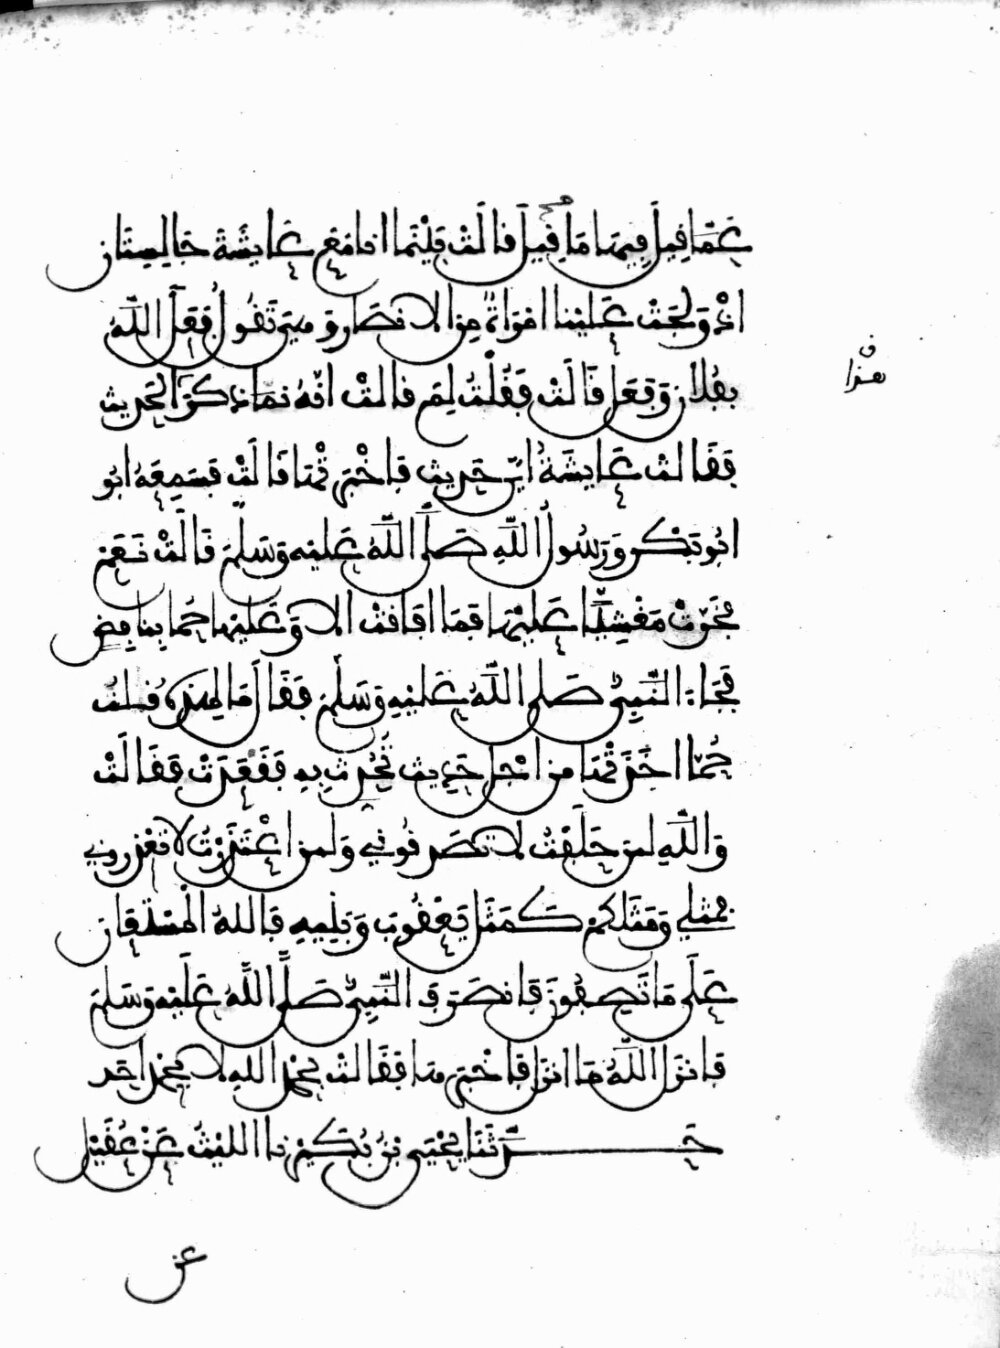 عَمَّا قِيلَ فِيهَا مَا قِيلَ قَالَتْ بَيْنَمَا انَا مَعَ عَايِشَةَ جَالِسَتَانِ
اذْ وَلَجَتْ عَلَيْنَا امْرَاةٌ مِنَ الانْصَارِ وَهِيَ تَقُولُ فَعَلَ اللَّهُ
بِفُلَانٍ وَفَعَلَ قَالَتْ فَقُلْتُ لِمَ قَالَتْ انَّهُ نَمَا ذِكْرَ الْحَدِيثِ
فَقَالَتْ عَايِشَةُ ايُّ حَدِيثٍ فَاخْبَرَتْهَا قَالَتْ فَسَمِعَهُ ابُو
ابُو بَكْرٍ وَرَسُولُ اللَّهِ صَلَّى اللَّهُ عَلَيْهِ وَسَلَّمَ قَالَتْ نَعَمْ
فَخَرَّتْ مَغْشِيًّا عَلَيْهَا فَمَا افَاقَتْ الا وَعَلَيْهَا حُمَّا بِنَافِضٍ
فَجَاءَ النَّبِيُّ صَلَّى اللَّهُ عَلَيْهِ وَسَلَّمَ فَقَالَ مَا لِهَذِهِ قُلْتُ
حُمَّا اخَذَتْهَا مِنْ اجْلِ حَدِيثٍ تُحُدِّثَ بِهِ فَقَعَدَتْ فَقَالَتْ
وَاللَّهِ لَئِنْ حَلَفْتُ لَا تُصَدِّقُونِي وَلَئِنِ اعْتَذَرْتُ لَا تَعْذِرُونِي
فَمَثَلِي وَمَثَلُكُمْ كَمَثَلِ يَعْقُوبَ وَبَنِيهِ فَاللَّهُ الْمُسْتَعَانُ
عَلَى مَا تَصِفُونَ فَانْصَرَفَ النَّبِيُّ صَلَّى اللَّهُ عَلَيْهِ وَسَلَّمَ
فَانْزَلَ اللَّهُ مَا انْزَلَ فَاخْبَرَهَا فَقَالَتْ بِحَمْدِ اللَّهِ لَا بِحَمْدِ احَدٍ
حَدَّثَنَا يَحْيَى بْنُ بُكَيْرٍ نا اللَّيْثُ عَنْ عُقَيْلٍ
عن